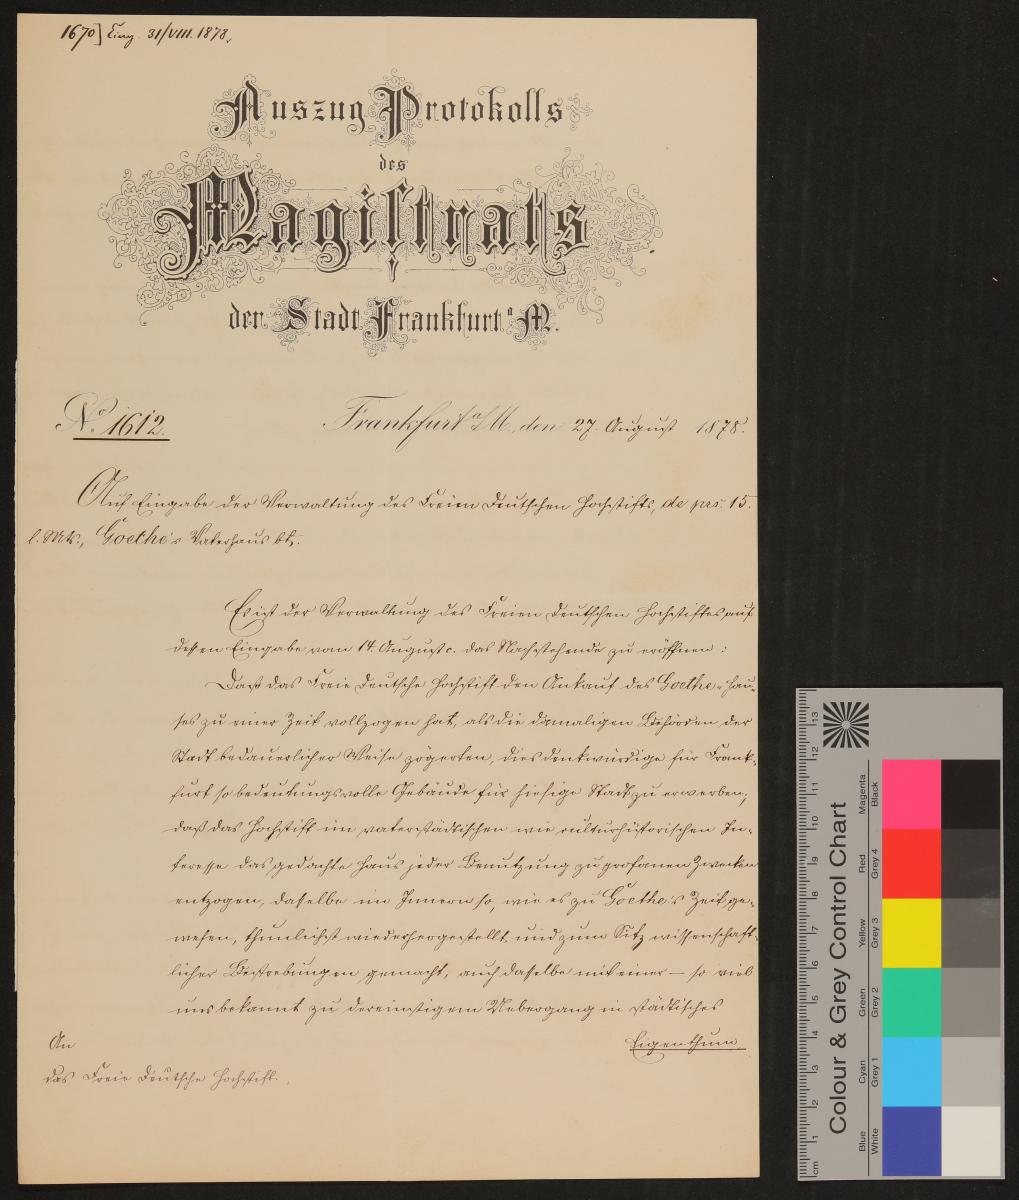 1670] Eing. 31/VIII. 1878.
Auszug Protokolls
des
Magiſtrats
der Stadt Frankfurt a M.
No. 1612.
Frankfurt a/M., den 27. August 1878.
Auf Eingabe der Verwaltung des Freien Deutschen Hochstifts, de prs. 15.
l. Mts., Goethe's Vaterhaus btr.
Es ist der Verwaltung des Freien Deutschen Hochstiftes auf
dessen Eingabe vom 14. August c. das Nachstehende zu eröffnen:
Daß das Freie Deutsche Hochstift den Ankauf des Goethe-Hau-
ses zu einer Zeit vollzogen hat, als die damaligen Behörden der
Stadt bedauerlicher Weise zögerten, dies denkwürdige für Frank-
furt so bedeutungsvolle Gebäude für hiesige Stadt zu erwerben;
daß das Hochstift im vaterstädtischen wie culturhistorischen In-
teresse das gedachte Haus jeder Benutzung zu profanen Zwecken
entzogen, dasselbe im Innern so, wie es zu Goethe's Zeit ge-
wesen, thunlichst wiederhergestellt und zum Sitz wissenschaft-
licher Bestrebungen gemacht, auch dasselbe mit einer — so viel
uns bekannt zu dereinstigem Uebergang in städtisches
Eigenthum
An
das Freie Deutsche Hochstift.
Colour & Grey Control Chart
Blue Cyan Green Yellow Red Magenta
White Grey 1 Grey 2 Grey 3 Grey 4 Black
cm 1 2 3 4 5 6 7 8 9 10 11 12 13